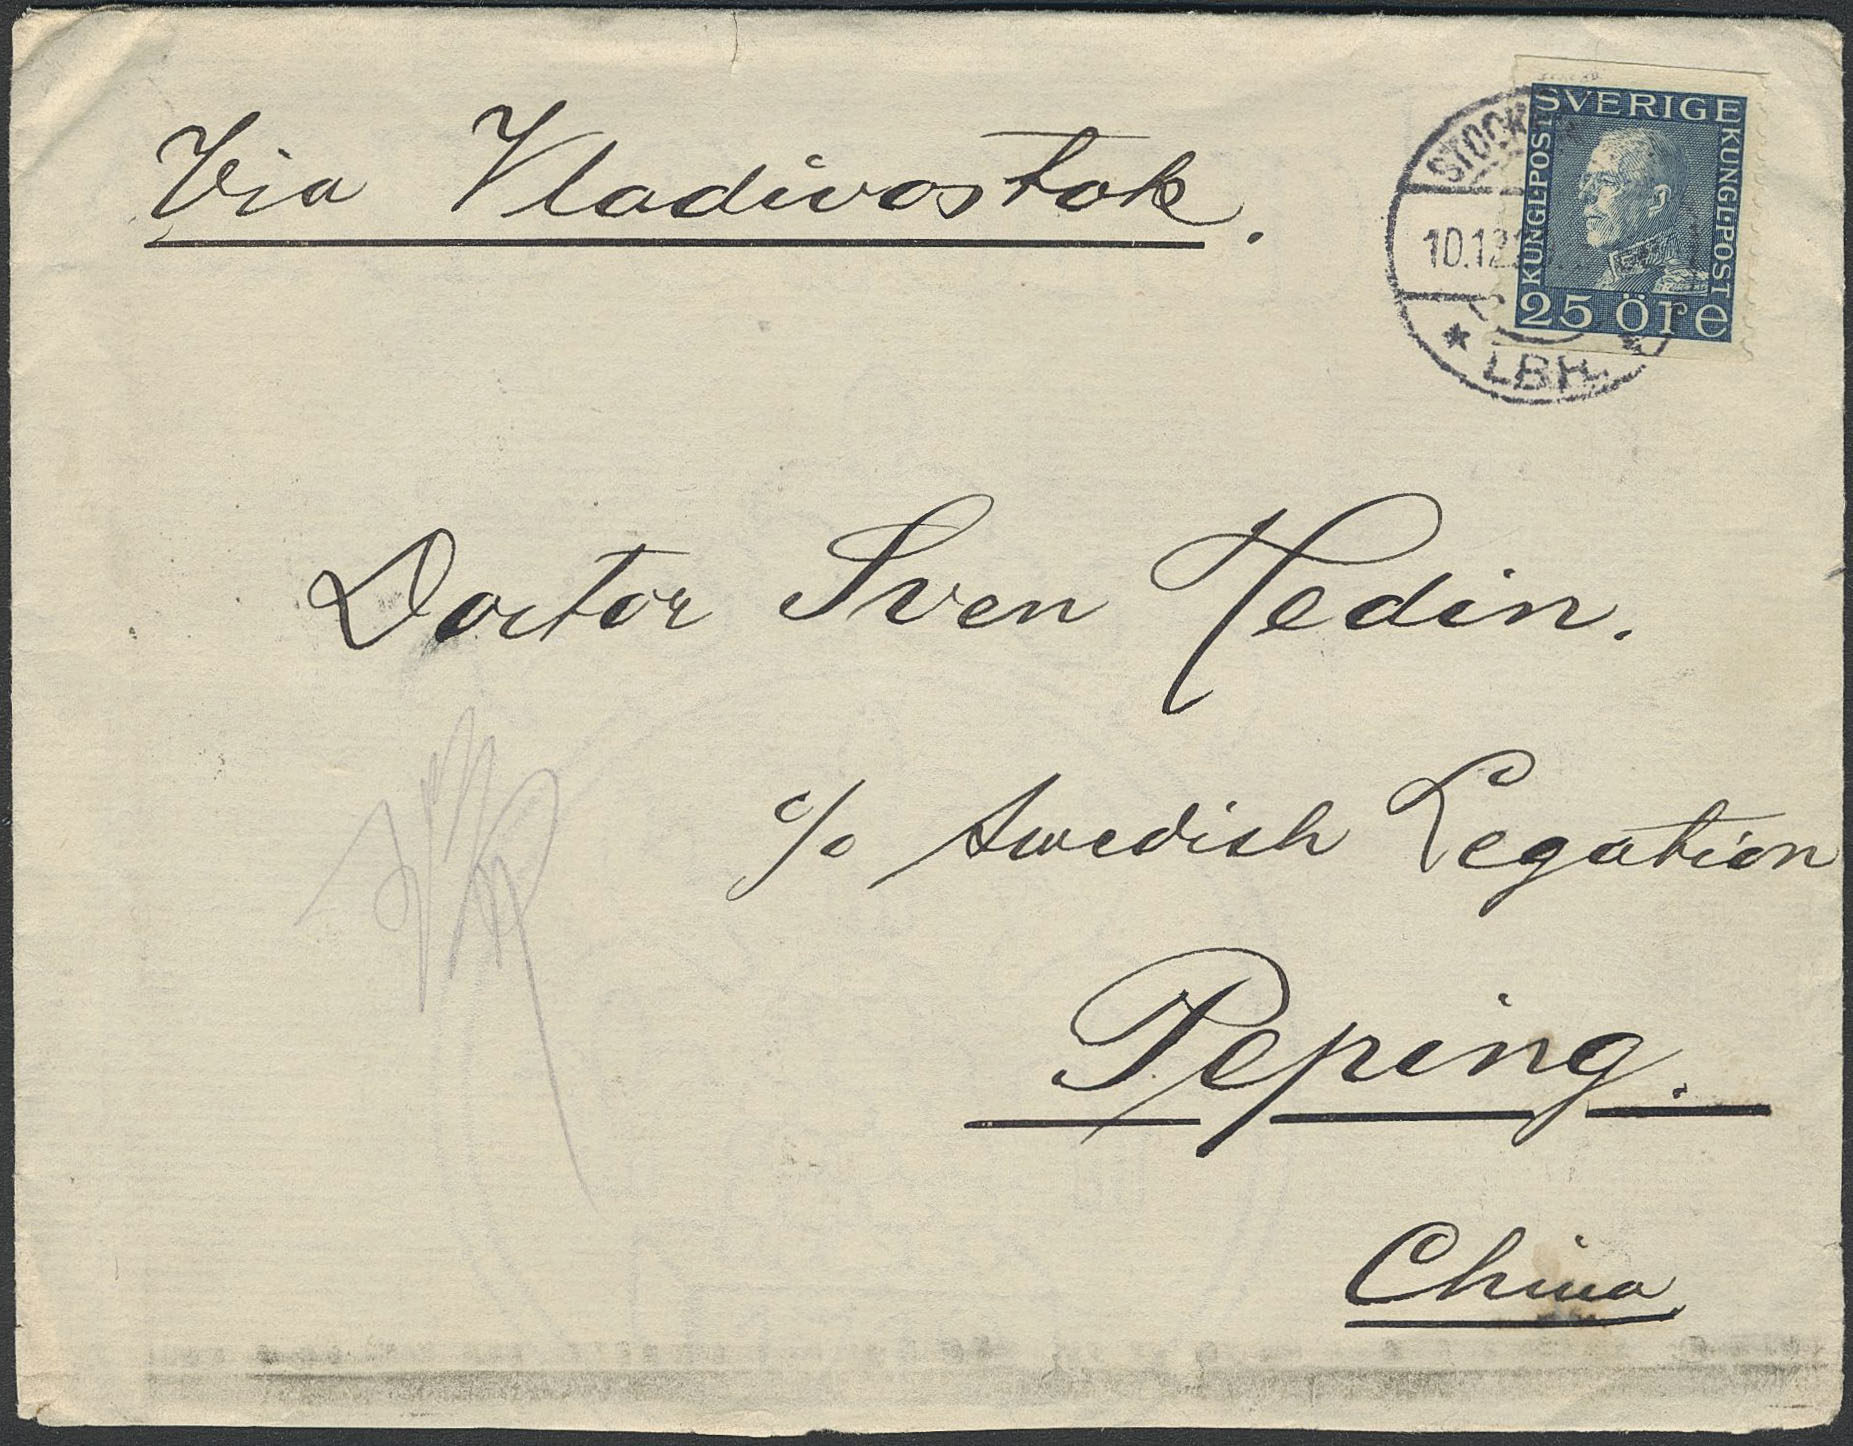 Via Vladivostok.
SVERIGE
KUNGL·POST
KUNGL·POST
25 öre
10.12
LBH.
Doctor Sven Hedin.
c/o Swedish Legation
Peping.
China